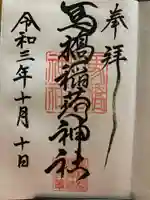 奉拝
馬橋稲荷神社
令和三年十月十日